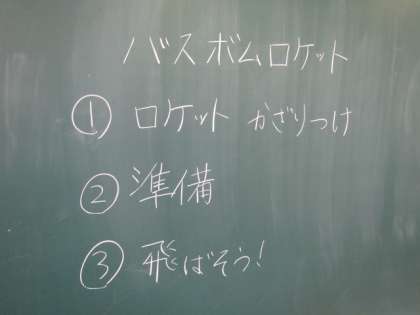 バスボムロケット
① ロケット かざりつけ
② 準備
③ 飛ばそう!